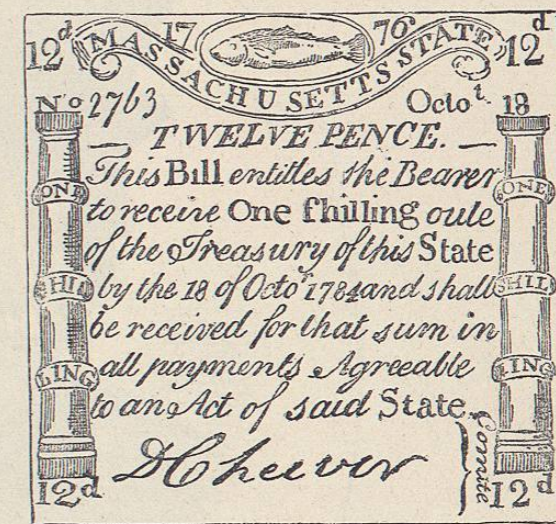 12d 17 76 12d
MASSACHUSETTS STATE
No 2763 Octot. 18
— TWELVE PENCE. —
This Bill entitles the Bearer
to receive One ſhilling oute
of the Treasury of this State
by the 18 of Octor 1784 and shall
be received for that sum in
all payments Agreeable
to an Act of said State.
ONE SHIL LING
ONE SHIL LING
DCheever
Comite
12d 12d